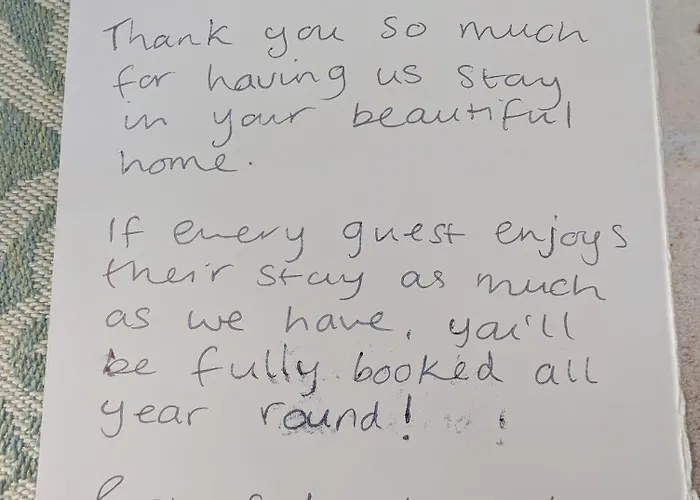 Thank you so much
for having us stay
in your beautiful
home.
If every guest enjoys
their stay as much
as we have, you'll
be fully booked all
year round!